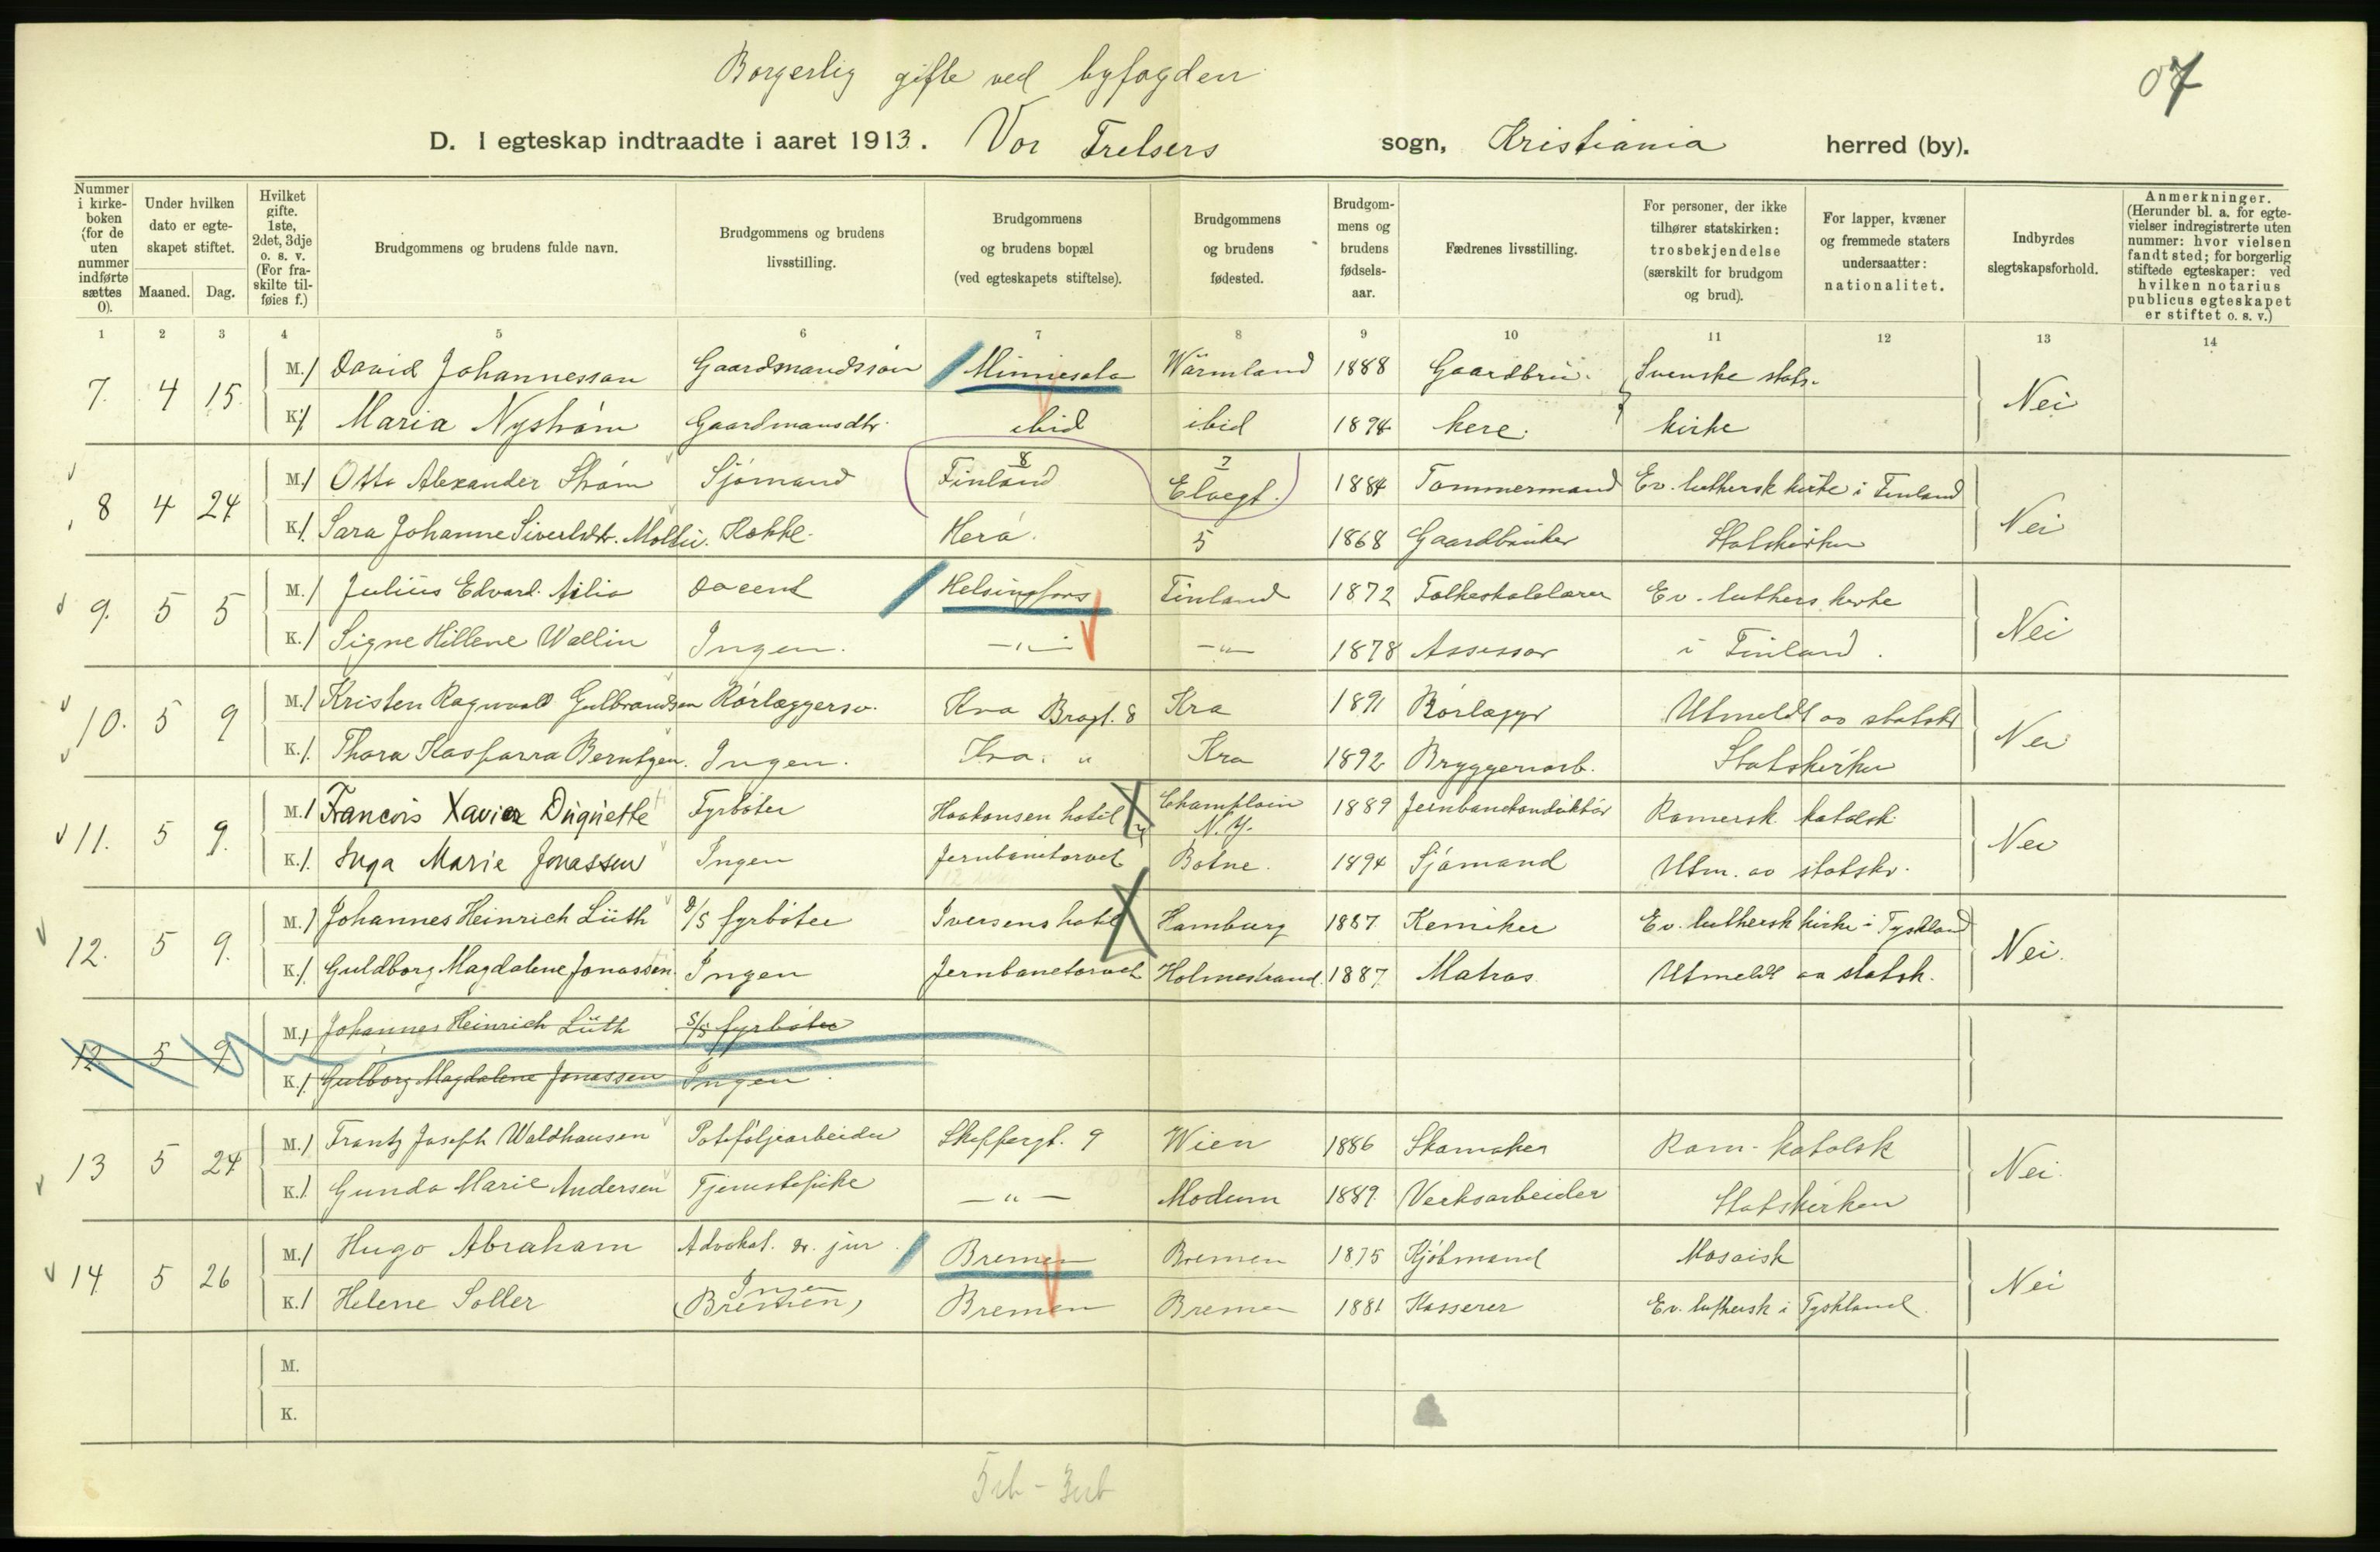 Borgerlig gifte ved byfogden
07
D. I egteskap indtraadte i aaret 1913. Vor Frelsers sogn, Kristiania herred (by).
Nummer i kirkeboken (for de uten nummer indførte sættes 0).
Under hvilken dato er egteskapet stiftet.
Maaned. Dag.
Hvilket gifte. 1ste, 2det, 3dje o. s. v. (For fraskilte tilføies f.)
Brudgommens og brudens fulde navn.
Brudgommens og brudens livsstilling.
Brudgommens og brudens bopæl (ved egteskapets stiftelse).
Brudgommens og brudens fødested.
Brudgommens og brudens fødselsaar.
Fædrenes livsstilling.
For personer, der ikke tilhører statskirken: trosbekjendelse (særskilt for brudgom og brud).
For lapper, kvæner og fremmede staters undersaatter: nationalitet.
Indbyrdes slegtskapsforhold.
Anmerkninger. (Herunder bl. a. for egtevielser indregistrerte uten nummer: hvor vielsen fandt sted; for borgerlig stiftede egteskaper: ved hvilken notarius publicus egteskapet er stiftet o. s. v.)
1 2 3 4 5 6 7 8 9 10 11 12 13 14
7. 4 15. M. 1 David Johannesson Gaardmandssøn Minnesota Wärmland 1888 Gaardbru- Svenske stats- Nei
K. 1 Maria Nyström Gaardmansdtr. ibid ibid 1894 kere. kirke
8 4 24 M. 1 Otto Alexander Strøm Sjømand Finland 8 Elvegt. 7 1884 Tømmermand Ev. luthersk kirke i Finland Nei
K. 1 Sara Johanne Sivertsdtr. Kokke. Herø. 5 1868 Gaardbruker Statskirken
9. 5 5 M. 1 Julius Edvard Ailio Docent Helsingfors Finland 1872 Folkeskolelærer Ev. luthers kirke Nei
K. 1 Signe Hillene Wallin Ingen. —"— —"— 1878 Assessor i Finland.
10. 5 9 M. 1 Kristen Ragnvald Gulbrandsen Rørlæggersv. Kra Bragt. 8 Kra 1891 Rørlægger Utmeldt av statsk Nei
K. 1 Thora Kasparra Berntzen. Ingen. Kra. " Kra 1892 Bryggeriarb. Statskirken
11. 5 9. M. 1 Francois Xavier Duquette Fyrbøter Haakonsen hotel Champlain N.Y. 1889 Jernbanekonduktør Romersk katolsk Nei
K. 1 Inga Marie Jonassen Ingen Jernbanetorvet Botne. 1894 Sjømand Utm. av statsk.
12. 5 9. M. 1 Johannes Heinrich Lüth S/S fyrbøter Iversens hotel Hamburg 1887 Kemiker Ev. luthersk kirke i Tyskland Nei.
K. 1 Guldborg Magdalene Jonassen. Ingen Jernbanetorvet Holmestrand. 1887. Matros Utmeldt av statsk.
12 5 9 M. 1 Johannes Heinrich Lüth S/S fyrbøter
K. 1 Gulborg Magdalene Jonassen Ingen.
13 5 24 M. 1 Frantz Joseph Waldhausen Poteføljearbeider Skippergt. 9 Wien 1886 Skomaker Rom-katolsk Nei.
K. 1 Gunda Marie Andersen Tjenestepike —"— Modum 1889. Verksarbeider Statskirken
14. 5 26 M. 1 Hugo Abraham Advokat. dr. jur. Bremen Bremen 1875 Kjøbmand Mosaisk Nei
K. 1 Helene Soller Ingen (Bremen) Bremen Bremen 1881 Kasserer Ev. luthersk i Tyskland.
M.
K.